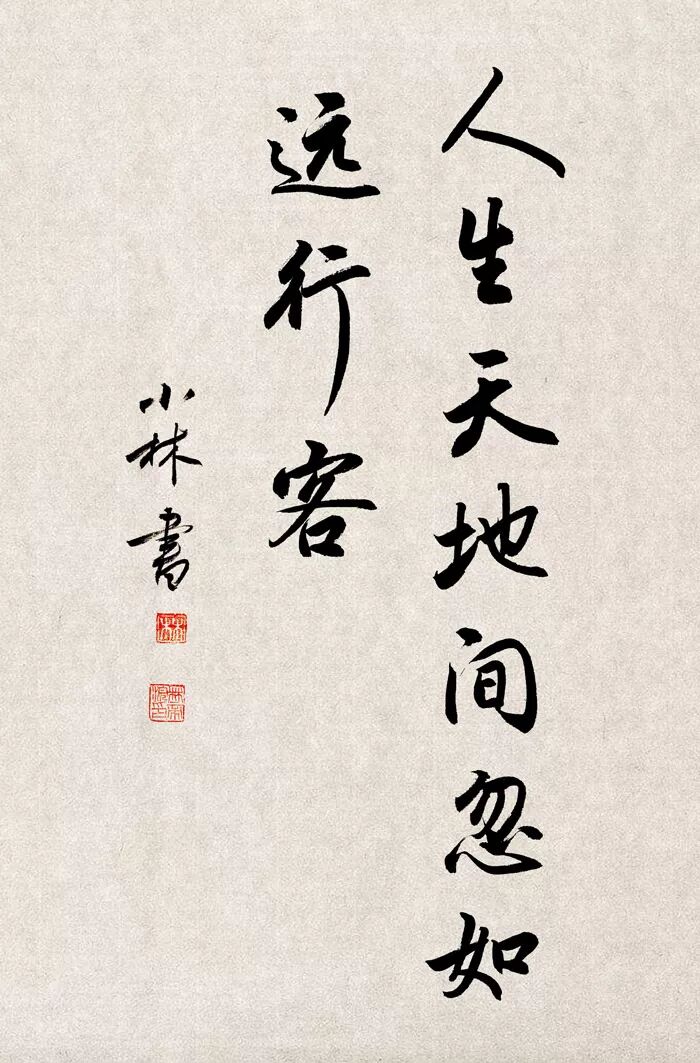 人生天地间忽如
远行客
小林書